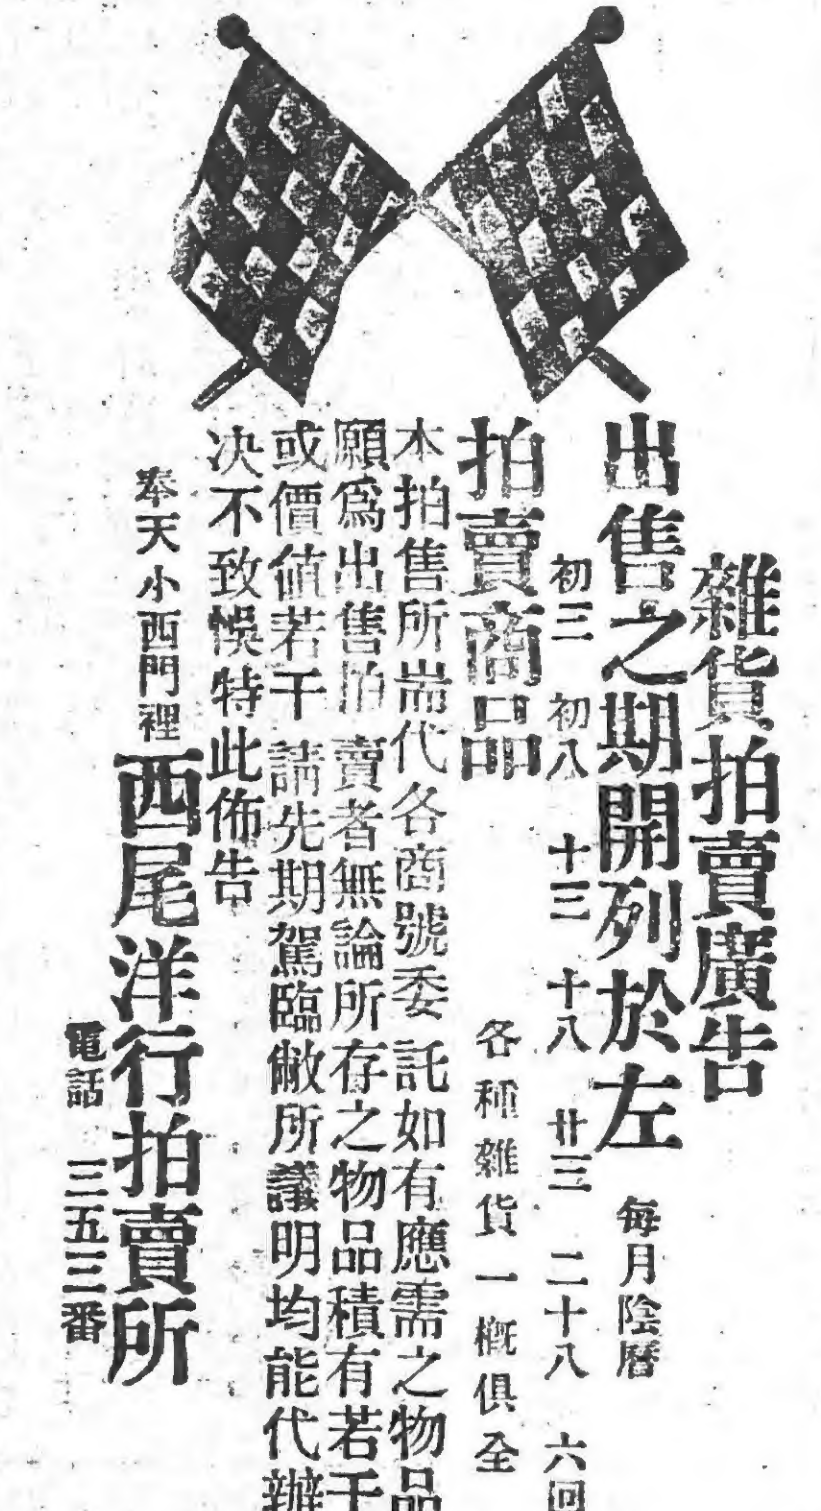 雜貨拍賣廣告
出售之期開列於左 每月陰曆
初三 初八 十三 十八 廿三 二十八 六回
拍賣商品 各種雜貨一概俱全
本拍售所耑代各商號委託如有應需之物品
願爲出售拍賣者無論所存之物品積有若干
或價値若干請先期駕臨敝所議明均能代辦
决不致悞特此佈告
奉天小西門裡 西尾洋行拍賣所
電話 三五三番